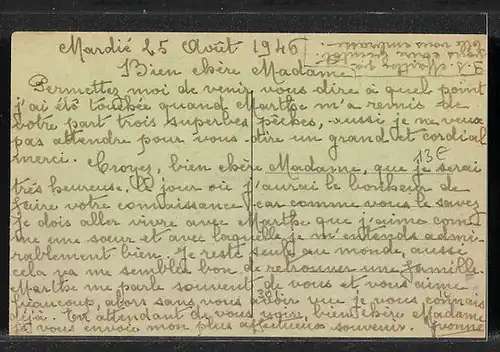 Mardié 25 Août 1946
Bien chère Madame
Permettez moi de venir vous dire à quel point
j'ai été touchée quand Marthe m'a remis de
votre part trois superbes pêches, aussi je ne veux
pas attendre pour vous dire un grand et cordial
merci. 13E
Croyez, bien chère Madame, que je serai
très heureuse, le jour où j'aurai le bonheur de
faire votre connaissance car comme vous le savez
je dois aller vivre avec Marthe que j'aime comme
une sœur et avec laquelle je m'entends admi-
rablement bien. Je reste seule au monde, aussi
cela va me sembler bon de retrouver une famille.
Marthe me parle souvent de vous et, vous aime
beaucoup, alors sans vous avoir vue je vous connais
déjà. En attendant de vous voir, bien chère Madame
je vous envoie mon plus affectueux souvenir. Yvonne
P.S. Marthe
vous
vous embrasse.